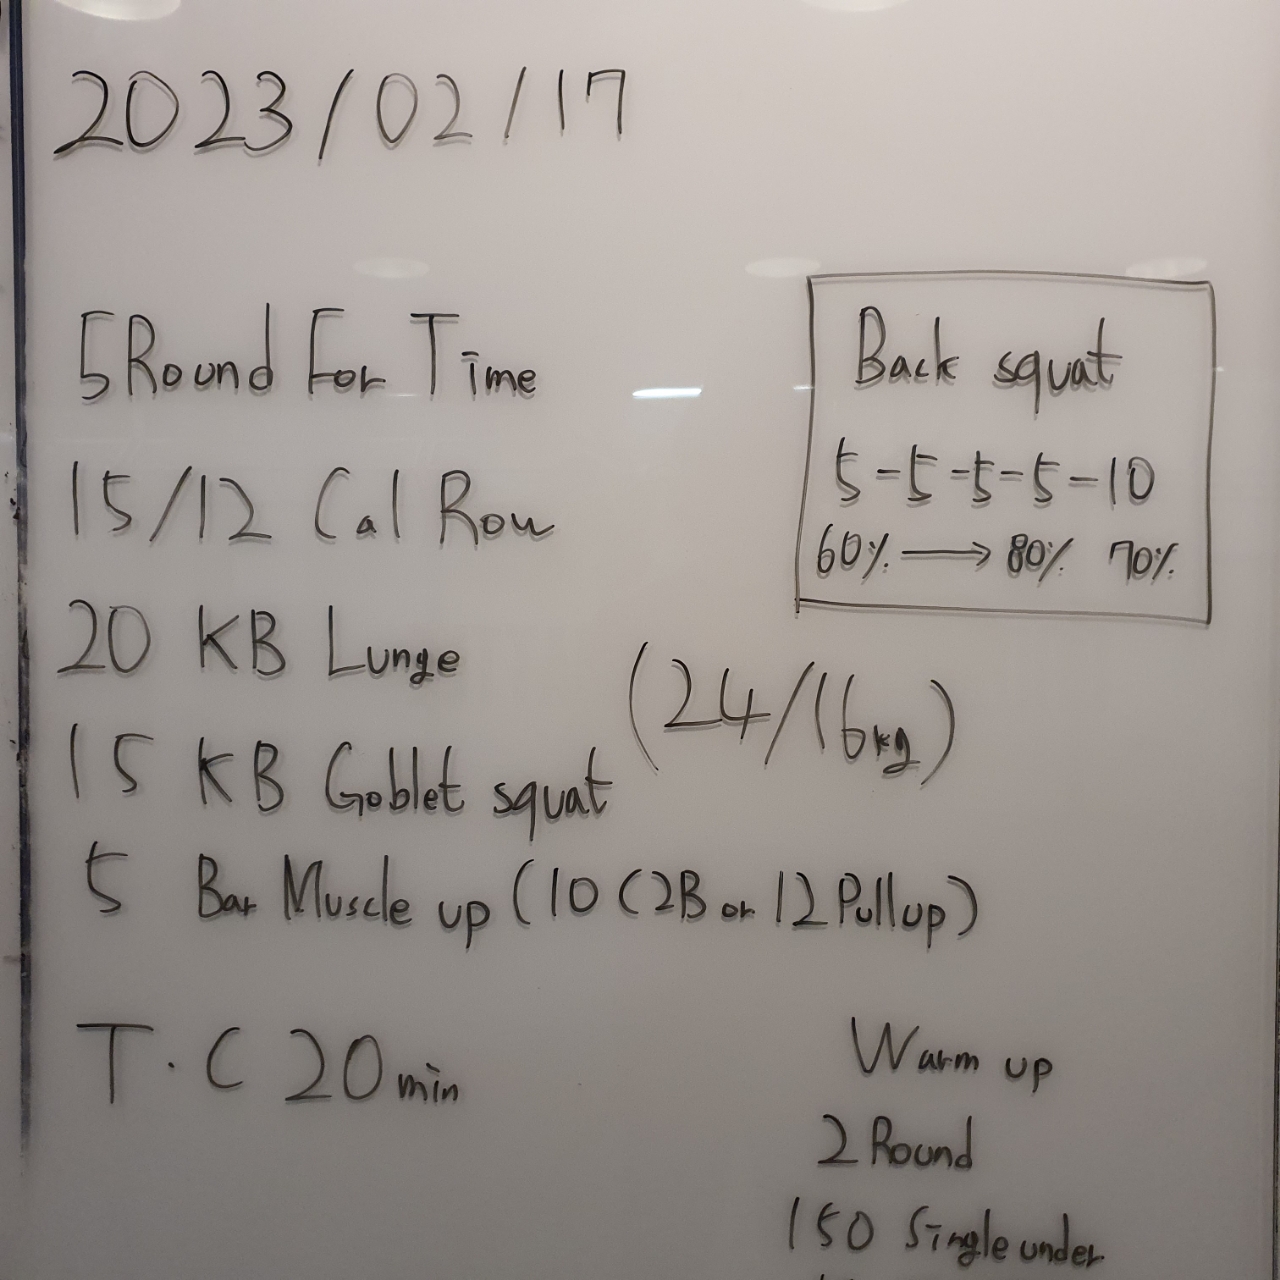 2023/02/17
5 Round For Time
15/12 Cal Row
20 KB Lunge
(24/16kg)
15 KB Goblet squat
5 Bar Muscle up (10 C2B or 12 Pull up)
T.C 20min
Back squat
5-5-5-5-10
60% → 80% 70%
Warm up
2 Round
150 Single under